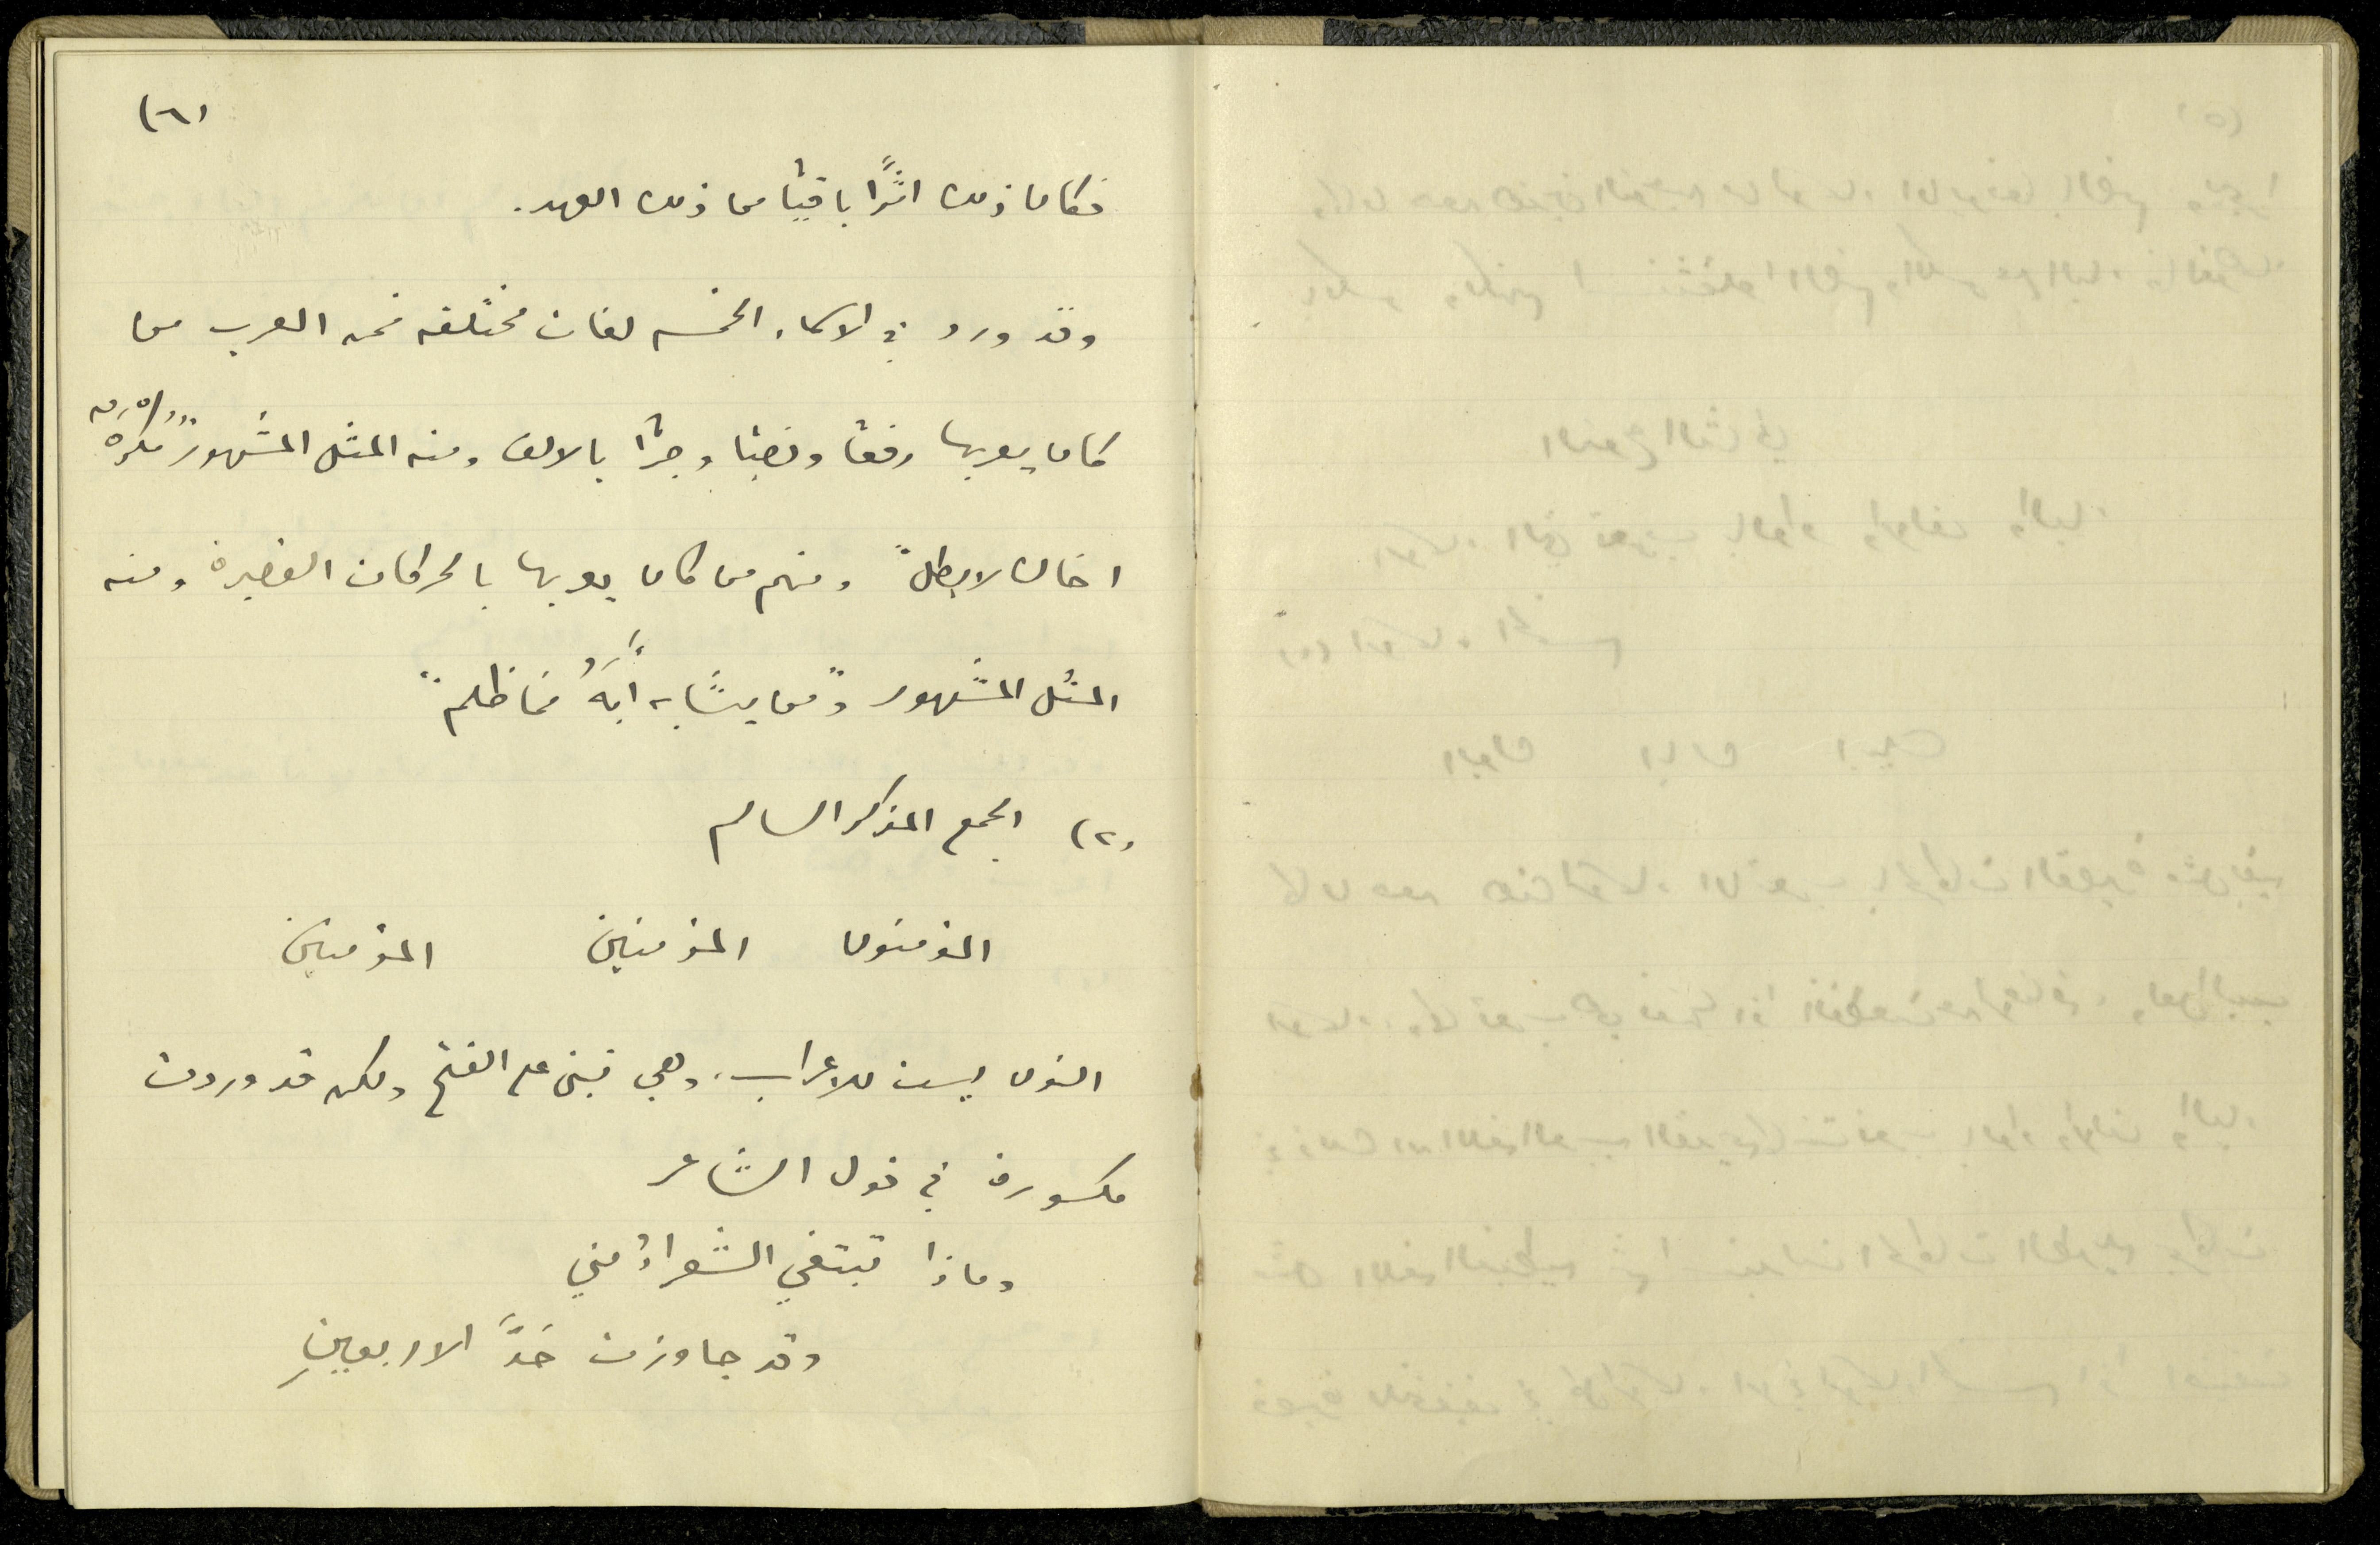 (٦)
فكان ذلك اثرًا باقيًا من ذلك العهد.
وقد ورد في الاسماء الخمسه لغات مختلفه فمن العرب من
كان يعربها رفعًا ونصبًا وجرًا بالالف ومنه المثل المشهور "مُكرَهٌ
اخاك لا بطل" ومنهم من كان يعربها بالحركات القصيرة ومنه
المثل المشهور "ومن يشابه أَبَهُ فما ظلم"
(٢) الجمع المذكر السالم
المؤمنون المؤمنين المؤمنين
النون ليست للاعراب، وهي تبنى على الفتح ولكن قد وردت
مكسورة في قول الشاعر
وماذا تبتغي الشعراءُ مني
وقد جاوزت حَدَّ الاربعينِ